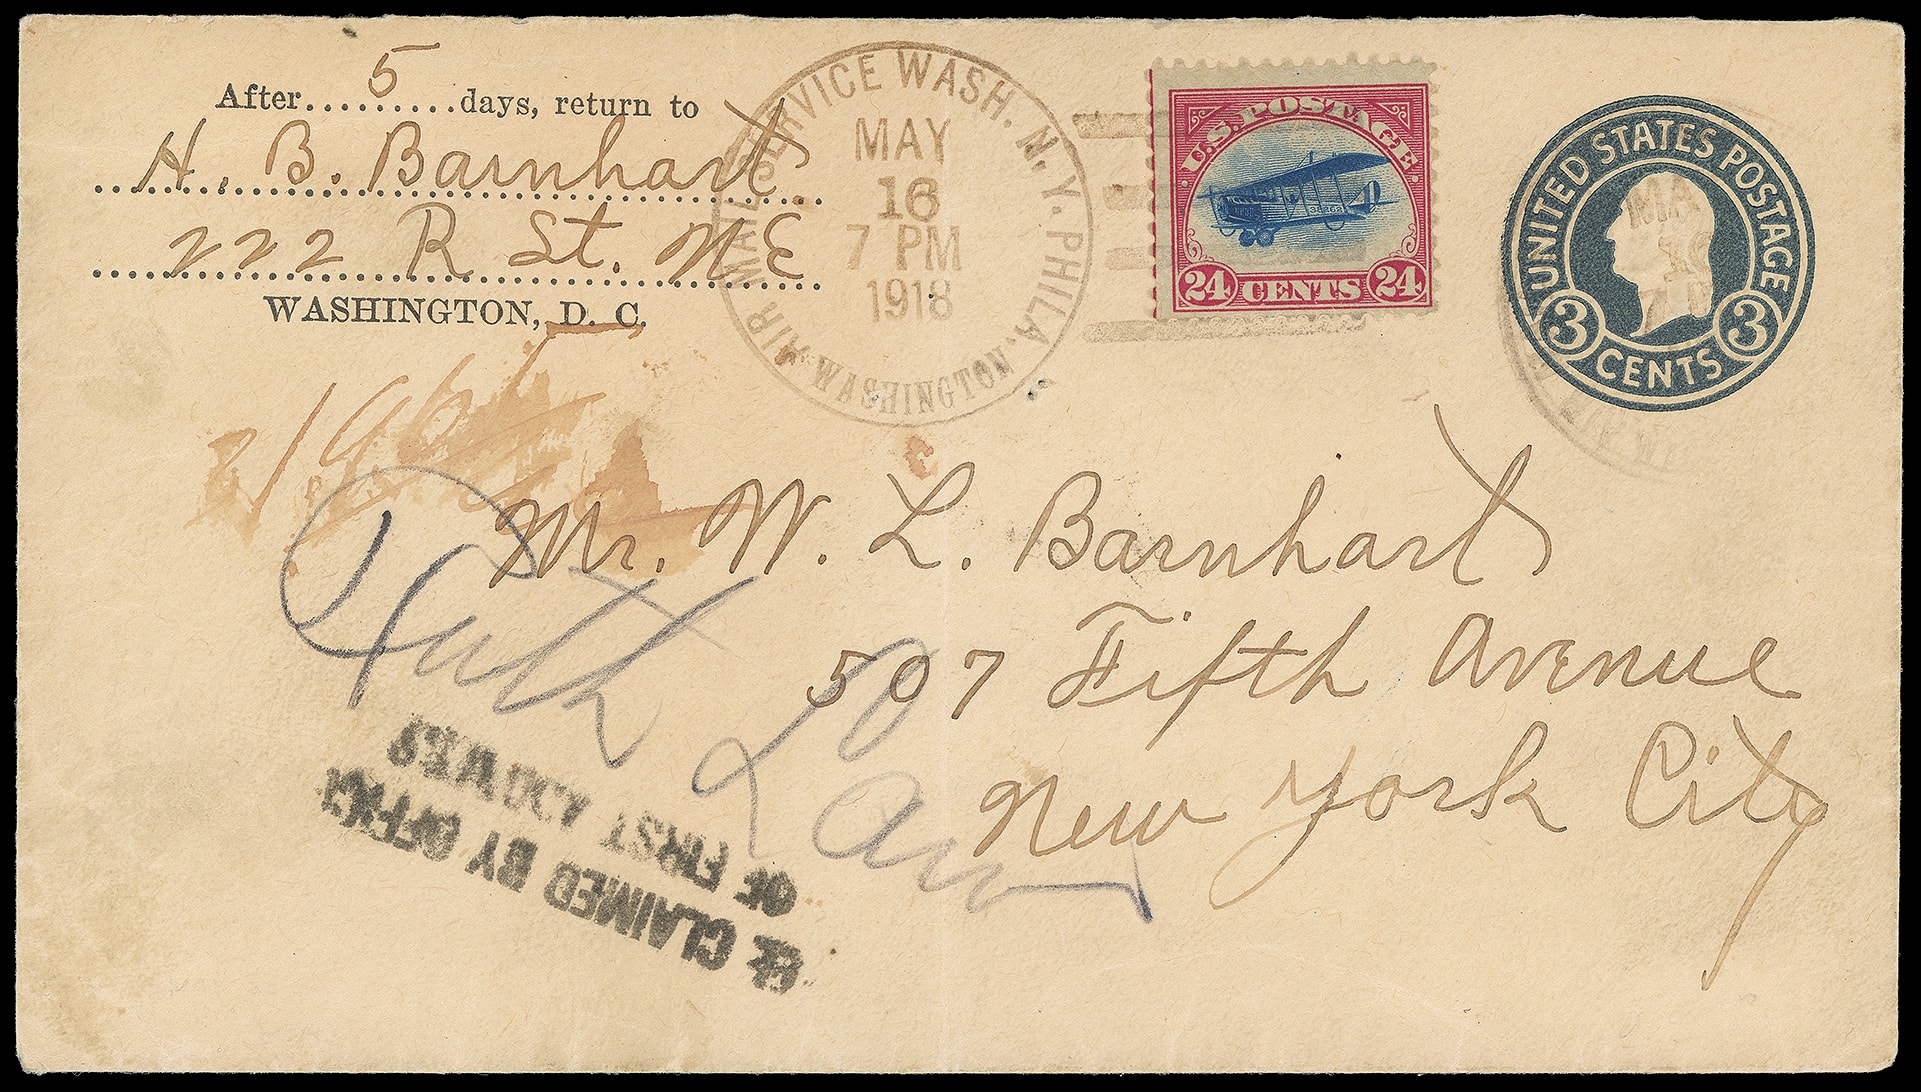 After.....5.....days, return to
H. B. Barnhart
222 R St. NE
WASHINGTON, D. C.
AIR MAIL SERVICE WASH. N.Y. PHILA.
WASHINGTON
MAY
16
7 PM
1918
U.S. POSTAGE
24 CENTS 24
UNITED STATES POSTAGE
3 CENTS 3
Mr. W. L. Barnhart
507 Fifth Avenue
New York City
CLAIMED BY OFFICE
OF FIRST ADDRESS